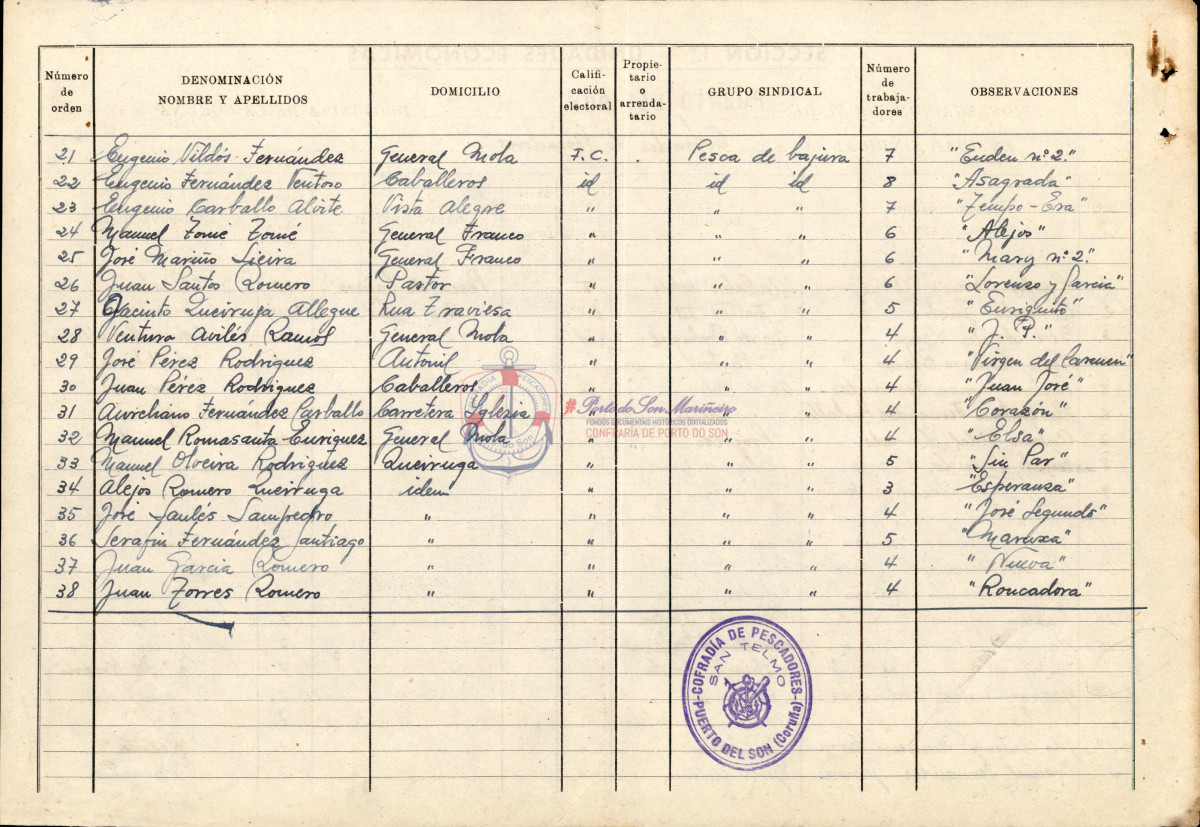 Número de orden | DENOMINACIÓN NOMBRE Y APELLIDOS | DOMICILIO | Califi-cación electoral | Propie-tario o arrenda-tario | GRUPO SINDICAL | Número de trabaja-dores | OBSERVACIONES
21 Eugenio Vildós Fernández General Mola F.C. . Pesca de bajura 7 "Euden nº 2."
22 Eugenio Fernández Ventoso Caballeros id id id 8 "Asagrada"
23 Eugenio Carballo Alvite Vista Alegre " " " 7 "Tempo-Era"
24 Manuel Tomé Tomé General Franco " " " 6 "Alejos"
25 José Mariño Sieira General Franco " " " 6 "Mary nº 2."
26 Juan Santos Romero Pastor " " " 6 "Lorenzo y García"
27 Jacinto Queiruga Allegue Rua Traviesa " " " 5 "Enriquito"
28 Ventura Avilés Ramos General Mola " " " 4 "J. P."
29 José Pérez Rodriguez " " " 4 "Virgen del Carmen"
30 Juan Pérez Rodriguez Caballeros " " " 4 "Juan José"
31 Aureliano Fernández Carballo Carretera Iglesia " " " 4 "Corazón"
32 Manuel Romasanta Enriquez General Mola " " " 4 "Elsa"
33 Manuel Olveira Rodriguez Queiruga " " " 5 "Sin Par"
34 Alejos Romero Queiruga idem " " " 3 "Esperanza"
35 José Saulés Sampedro " " " " 4 "José Segundo"
36 Serafin Fernández Santiago " " " " 5 "Maruxa"
37 Juan García Romero " " " " 4 "Nueva"
38 Juan Torres Romero " " " " 4 "Roncadora"
#Porto do Son Mariñeiro
FONDOS DOCUMENTAIS HISTÓRICOS DIGITALIZADOS
CONFRARÍA DE PORTO DO SON
COFRADÍA DE PESCADORES
SAN TELMO
PUERTO DEL SON (Coruña)